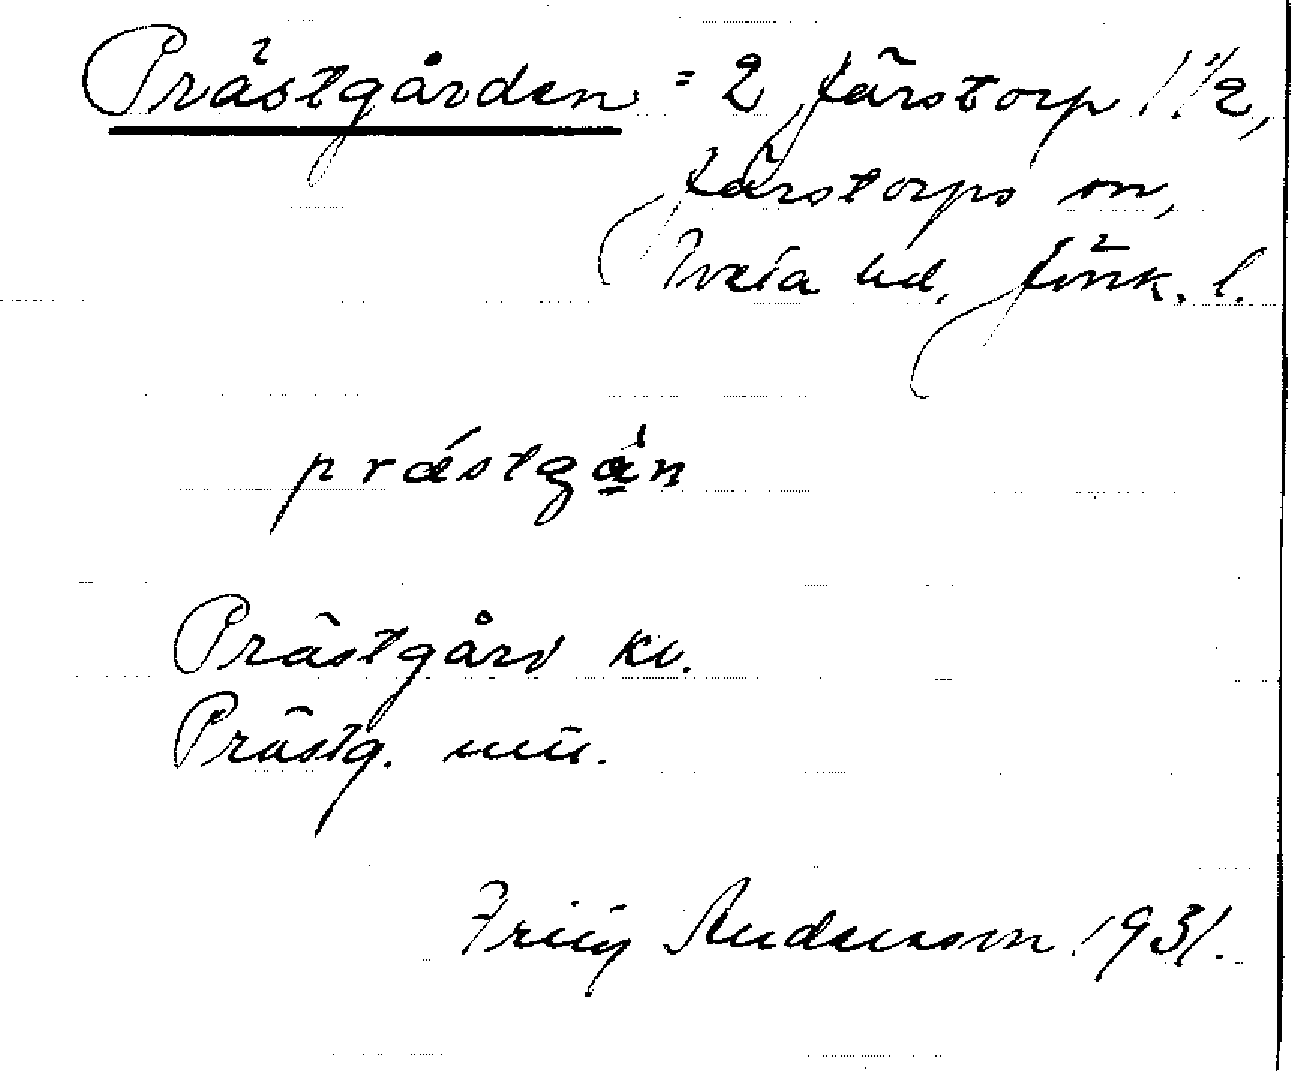 Prästgården = 2 Järstorp 1 1/2,
Järstorps sn,
Tveta hd, Jönk. l.
prästgån
Prästgård kv.
Prästg.
Andersson 1931.